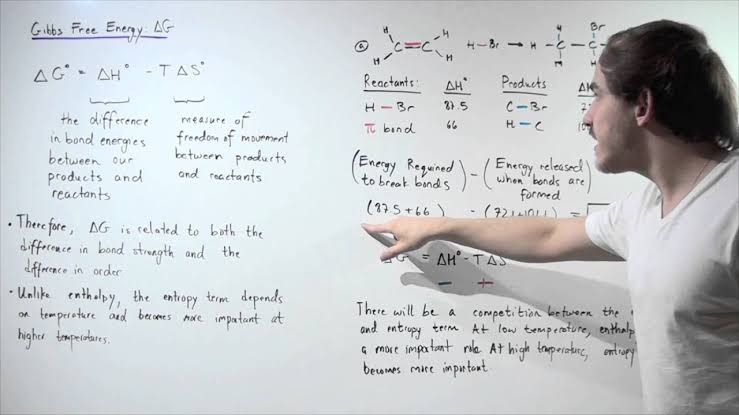 Gibbs Free Energy: ΔG
ΔG° = ΔH° - TΔS°
the difference
in bond energies
between our
products and
reactants
measure of
freedom of movement
between products
and reactants
• Therefore, ΔG is related to both the
difference in bond strength and the
difference in order
• Unlike enthalpy, the entropy term depends
on temperature and becomes more important at
higher temperatures.
ⓐ H H C=C H H H-Br → H-C-C H Br
Reactants: ΔH° Products
H-Br 87.5 C-Br
π bond 66 H-C
(Energy Required
to break bonds) - (Energy released
when bonds are
formed
(87.5+66) =
ΔG° = ΔH° - TΔS
There will be a competition between the
and entropy term At low temperature,
a more important role At high temperature,
becomes more important.